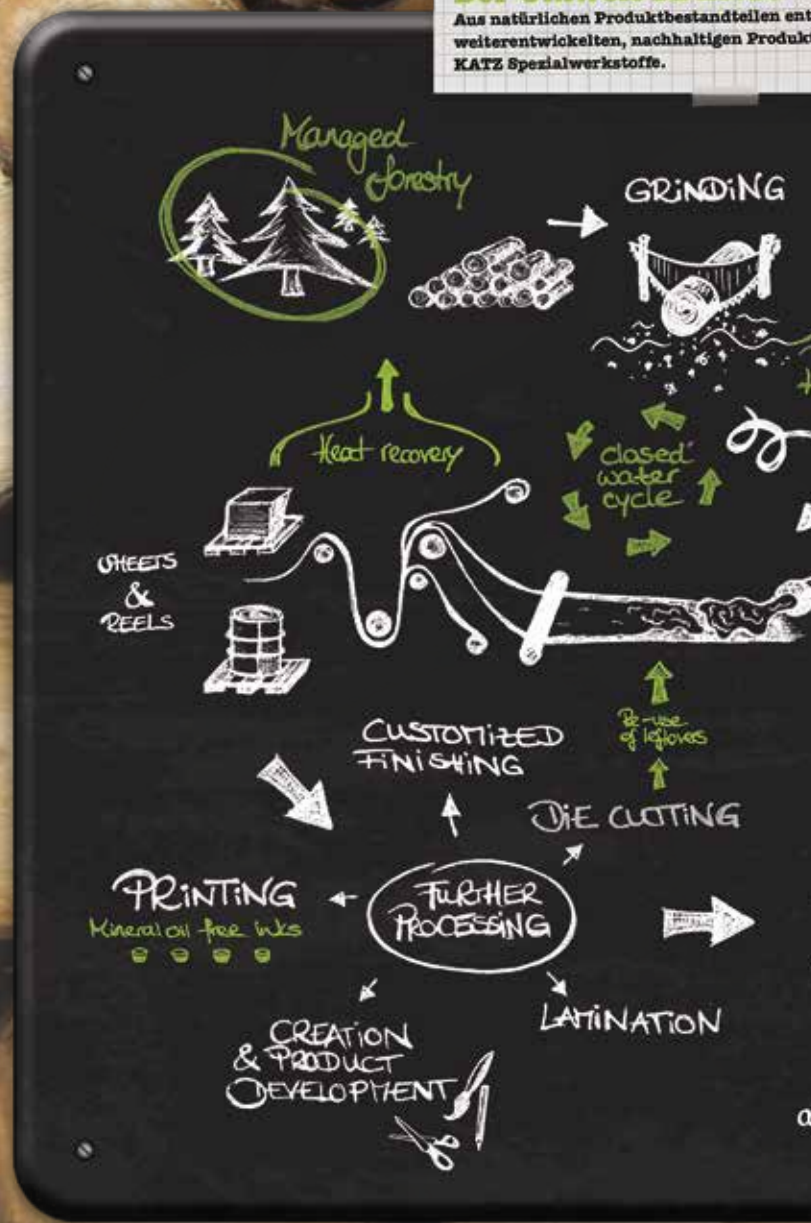 Aus natürlichen Produktbestandteilen ent
weiterentwickelten, nachhaltigen Produkt
KATZ Spezialwerkstoffe.
Managed
forestry
GRINDING
Heat recovery
closed
water
cycle
SHEETS
&
REELS
Re-use
of leftovers
CUSTOMIZED
FINISHING
DIE CUTTING
PRINTING
Mineral oil free inks
FURTHER
PROCESSING
CREATION
& PRODUCT
DEVELOPMENT
LAMINATION